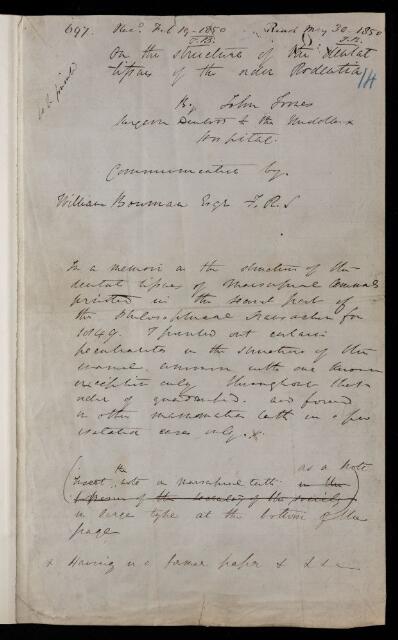 697. Rec.d Feb 19-1850 Read May 30-1850
T.B. T.B.
On the structure of the dental
tissues of the order Rodentia
to be printed
By John Tomes
Surgeon Dentist to the Middlesex
Hospital.
Communicated by.
William Bowman Esqr F.R.S
In a memoir on the structure of the
dental tissues of Marsupial Animals
printed in the second part of
the Philosophical Transactions for
1849. I pointed out certain
peculiarities in the structure of the
enamel common with one known
exception only throughout that
order of quadrupeds. and found
in other mammalian teeth in a few
isolated cases only. x
(Insert the note on marsupial teeth in the as a note
of the Society of the Society)
in large type at the bottom of the
page
x Having in a former paper &